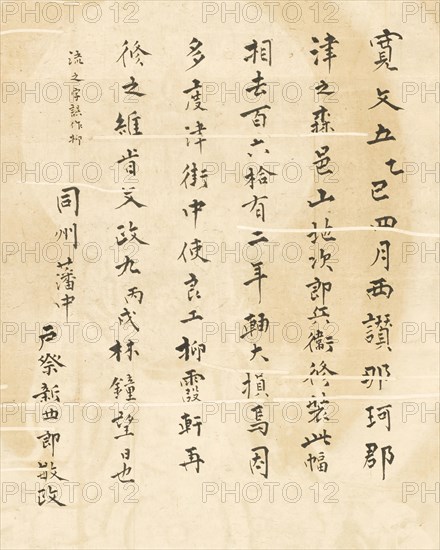 寛文五乙巳四月西讃那珂郡
津之森邑山地次郎兵衛修装此幅
相去百六拾有二年軸大損焉因
多度津街中使良工柳霞軒再
修之維肯文政九丙戌林鐘望日也
流之字誤作柳
同州藩中
戸祭新四郎敏政